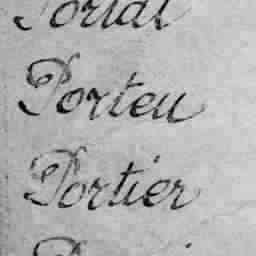 Portal
Porteu
Portier